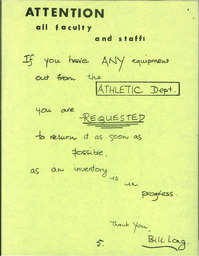 ATTENTION
all faculty
and staff:
If you have ANY equipment
out from the
ATHLETIC Dept.
you are
REQUESTED
to return it as soon as
possible,
as an inventory
is in
progress.
Thank You,
Bill Long
5.